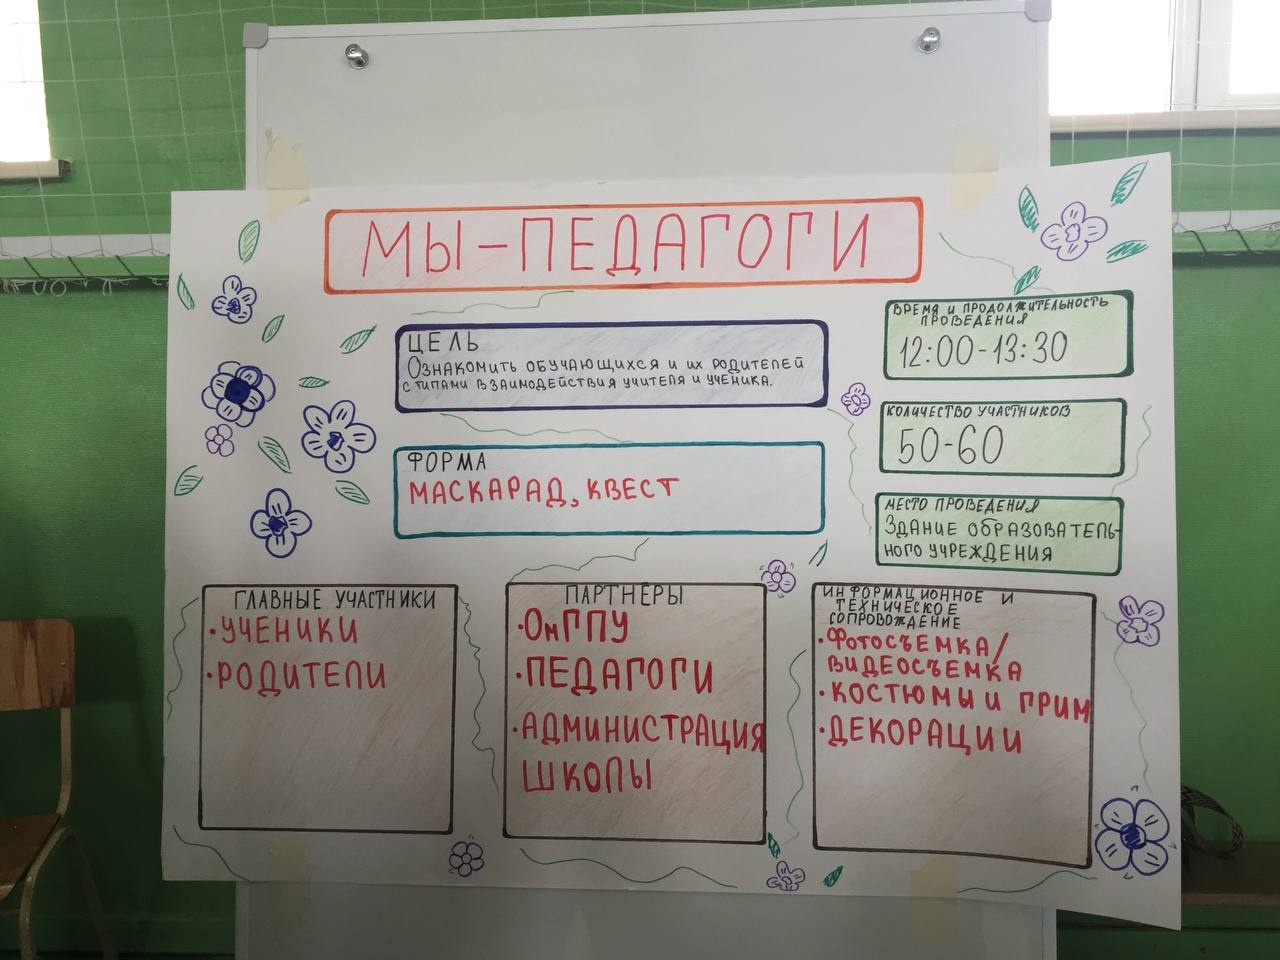 МЫ-ПЕДАГОГИ
ЦЕЛЬ
Ознакомить обучающихся и их родителей
с типами взаимодействия учителя и ученика.
ФОРМА
МАСКАРАД, КВЕСТ
ВРЕМЯ И ПРОДОЛЖИТЕЛЬНОСТЬ
ПРОВЕДЕНИЯ
12:00-13:30
КОЛИЧЕСТВО УЧАСТНИКОВ
50-60
МЕСТО ПРОВЕДЕНИЯ
ЗДАНИЕ ОБРАЗОВАТЕЛЬ-
НОГО УЧРЕЖДЕНИЯ
ГЛАВНЫЕ УЧАСТНИКИ
·УЧЕНИКИ
·РОДИТЕЛИ
ПАРТНЁРЫ
·ОмГПУ
·ПЕДАГОГИ
·АДМИНИСТРАЦИЯ
ШКОЛЫ
ИНФОРМАЦИОННОЕ И
ТЕХНИЧЕСКОЕ
СОПРОВОЖДЕНИЕ
·ФОТОСЪЕМКА/
ВИДЕОСЪЕМКА
·КОСТЮМЫ И ГРИМ
·ДЕКОРАЦИИ